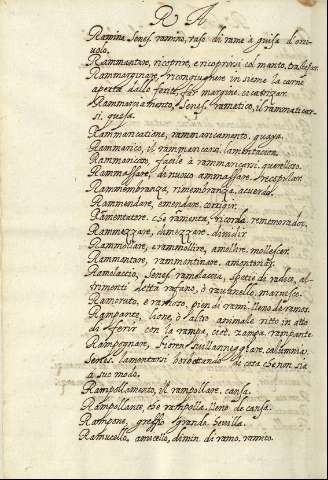 R A
Ramina Senes. ramino, vaso di rame à guisa d'orci
uolo.
Rammantare, ricoprire, e ricoprirsi col manto,
Rammarginare, ricongiugnere insieme la carne
aperta dalle ferite, far margine, cicatrizar.
Rammarginamento, Senes. ramatico, il rammaricar
si, querela.
Rammaricatione, rammaricamento, querela.
Rammarico, il rammaricarsi, lamentatione.
Rammaricoso, facile à rammaricarsi, quereloso.
Rammassare, di nuovo ammassare,
Rammembranza, rimembranza, acuordo.
Rammendare, emendare, corrigir.
Ramentatore. che ramenta, ricorda, rememorador.
Rammezzare, dimezzare, dimidir
Rammollare, e rammollire, amollire, mollescer.
Rammontare, rammontinare, amontonar.
Ramolaccio, Senes. ramolaccio, spetie di radice, al-
trimenti detta rafano, ò rauanello,
Ramoruto, e ramoso, pien di rami, lleno de ramos.
Rampante, lione, ò altro animale ritto in atto
di ferir con la rampa, cioè, zampa, rampante
Rampognare, Fioren.
Senes. lamentarsi borbottando di cosa che non sia
a suo modo.
Rampollamento, il rampollare, cansa.
Rampollante, che rampolla, lleno de cansa.
Rampone, greffio grande,
Ramucello, ramicello, dimin. di ramo, ramico.